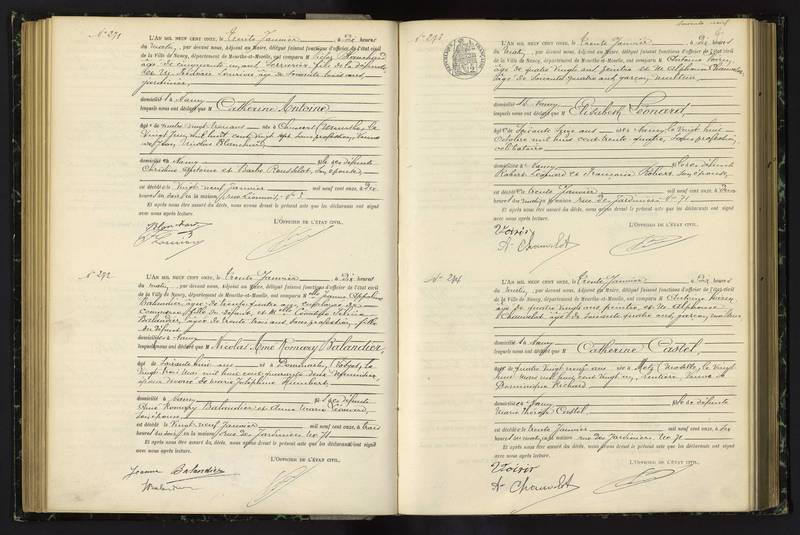 N° 291
L'AN MIL NEUF CENT ONZE, le trente Janvier à dix heures
du matin, par devant nous, Adjoint au Maire, délégué faisant fonctions d'officier de l'état civil
de la Ville de Nancy, département de Meurthe-et-Moselle, ont comparu M Victor Blanchard
âgé de cinquante ans, serrurier, fils de la défunte
et M Louviou âgé de soixante trois ans
jardinier,
domiciliés à Nancy
lesquels nous ont déclaré que M Catherine Antoine
âgée de quatre vingt trois ans née à (Meurthe) le
vingt mil huit cent vingt sept, sans profession, veuve
de Jean Nicolas Blanchard
domiciliée à Nancy fille des défunts
Christine Antoine et Barbe son épouse,
est décédée le vingt neuf Janvier mil neuf cent onze, à dix
heures du soir en la maison, rue n° 3
Et après nous être assuré du décès, nous avons dressé le présent acte que les déclarants ont signé
avec nous après lecture.
L'OFFICIER DE L'ÉTAT CIVIL,
Blanchard
N° 292
L'AN MIL NEUF CENT ONZE, le trente Janvier à dix heures
du matin, par devant nous, Adjoint au Maire, délégué faisant fonctions d'officier de l'état civil
de la Ville de Nancy, département de Meurthe-et-Moselle, ont comparu Melle Jeanne
Balandier, âgée de trente quatre ans employée de
commerce, fille du défunt, et Melle
Balandier, âgée de trente trois ans, sans profession, fille
du défunt
domiciliées à Nancy
lesquels nous ont déclaré que M Nicolas Aimé Romary Balandier,
âgé de soixante huit ans né à Dommartin (Vosges) le
vingt trois mai mil huit cent quarante deux
époux divorcé de Marie Joséphine Humbert,
domicilié à Nancy fils des défunts
Aimé Romary Balandier et Anne Marie Léonard,
son épouse
est décédé le vingt neuf Janvier mil neuf cent onze, à trois
heures du soir en la maison, rue des Jardiniers no 71
Et après nous être assuré du décès, nous avons dressé le présent acte que les déclarants ont signé
avec nous après lecture.
L'OFFICIER DE L'ÉTAT CIVIL,
Jeanne Balandier
Balandier
N° 293
L'AN MIL NEUF CENT ONZE, le trente Janvier à dix heures
du matin, par devant nous, Adjoint au Maire, délégué faisant fonctions d'officier de l'état civil
de la Ville de Nancy, département de Meurthe-et-Moselle, ont comparu M Antoine Voirin,
âgé de quatre vingt ans peintre et M Alphonse Chauvelot
âgé de soixante quatre ans, garçon
domiciliés à Nancy
lesquels nous ont déclaré que M Elisabeth Léonard,
âgée de soixante seize ans née à Nancy le vingt huit
Octobre mil huit cent trente quatre, sans profession,
célibataire
domiciliée à Nancy fille des défunts
Robert Léonard et Françoise Robert, son épouse,
est décédée le trente Janvier mil neuf cent onze, à deux
heures du matin en la maison, rue des Jardiniers n° 71
Et après nous être assuré du décès, nous avons dressé le présent acte que les déclarants ont signé
avec nous après lecture.
L'OFFICIER DE L'ÉTAT CIVIL,
Voirin
A. Chauvelot
N° 294
L'AN MIL NEUF CENT ONZE, le trente Janvier à dix heures
du matin, par devant nous, Adjoint au Maire, délégué faisant fonctions d'officier de l'état civil
de la Ville de Nancy, département de Meurthe-et-Moselle, ont comparu M Antoine Voirin,
âgé de quatre vingts ans peintre, et M Alphonse
Chauvelot âgé de soixante quatre ans, garçon,
domiciliés à Nancy
lesquels nous ont déclaré que M Catherine Castel,
âgée de quatre vingt neuf ans née à Metz (Moselle) le vingt
mil huit cent vingt un, rentière, veuve de
Dominique Richard
domiciliée à Nancy fille des défunts
Marie Thérèse Castel,
est décédée le trente Janvier mil neuf cent onze, à six
heures du matin, en la maison rue des Jardiniers, no 71
Et après nous être assuré du décès, nous avons dressé le présent acte que les déclarants ont signé
avec nous après lecture.
L'OFFICIER DE L'ÉTAT CIVIL,
Voirin
A. Chauvelot